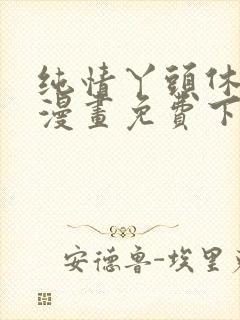 纯情丫頭休
漫畫免費下
安德鲁-埃里